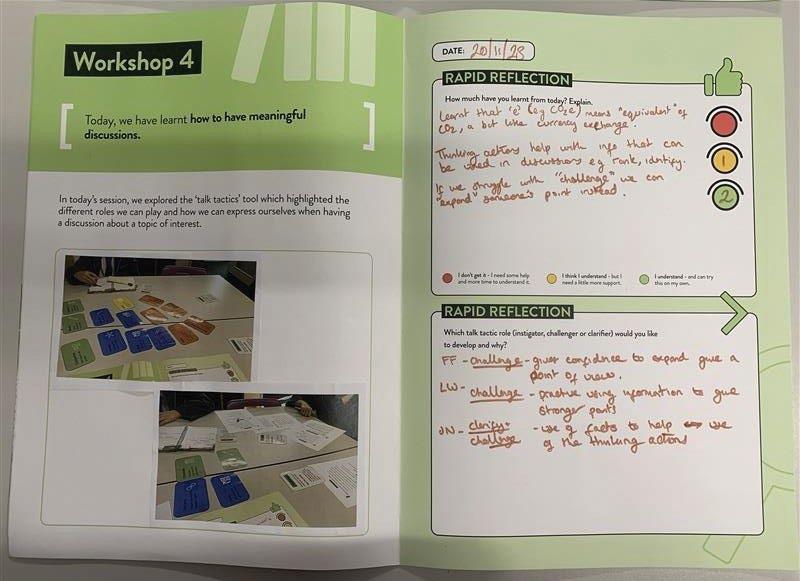 Workshop 4
Today, we have learnt how to have meaningful
discussions.
In today's session, we explored the 'talk tactics' tool which highlighted the
different roles we can play and how we can express ourselves when having
a discussion about a topic of interest.
DATE: 20/11/23
RAPID REFLECTION
How much have you learnt from today? Explain.
Learnt that 'e' (eg CO2e) means "equivalent" of
CO2, a bit like currency exchange.
Thinking actions help with info that can
be used in discussions eg rank, identify.
If we struggle with "challenge" we can
"expand" someone's point instead.
1
2
I don't get it - I need some help
and more time to understand it.
I think I understand - but I
need a little more support.
I understand - and can try
this on my own.
RAPID REFLECTION
Which talk tactic role (instigator, challenger or clarifier) would you like
to develop and why?
FF - challenge - gives confidence to expand give a
point of view.
LW - challenge - practice using information to give
stronger points
JN - clarify + - use of facts to help use
challenge of the thinking actions